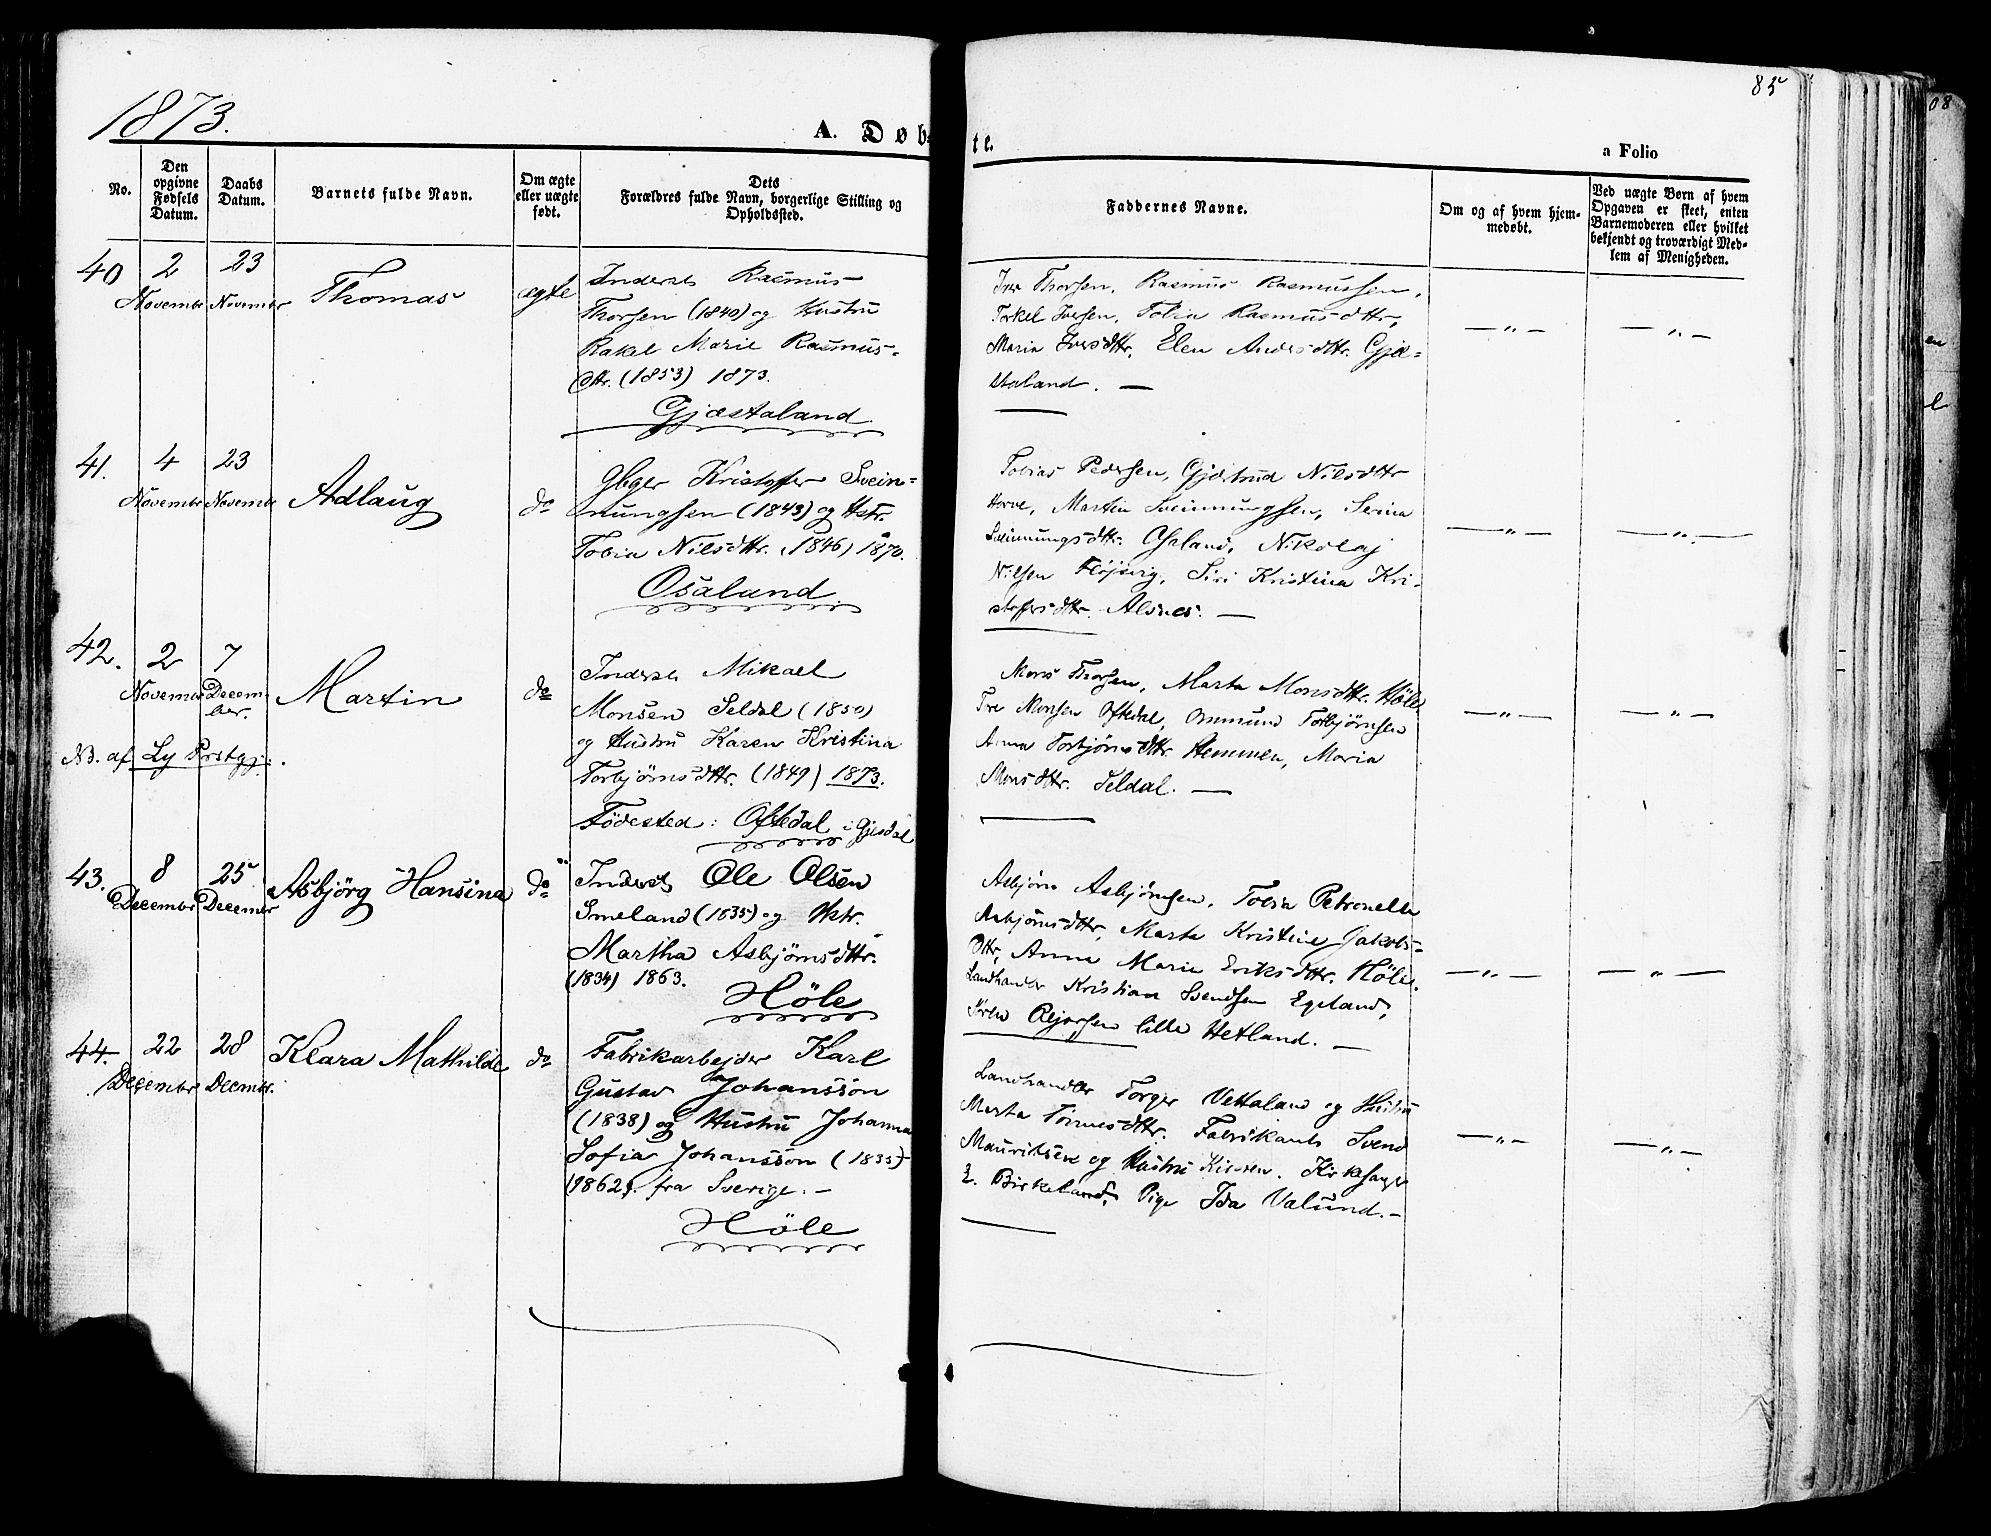 1873.
85
A. Døb-
te.
a Folio
No.
Den opgivne Fødsels Datum.
Daabs Datum.
Barnets fulde Navn.
Om ægte eller uægte født.
Dets Forældres fulde Navn, borgerlige Stilling og Opholdssted.
Faddernes Navne.
Om og af hvem hjemmedøbt.
Ved uægte Børn af hvem Opgaven er skeet, enten Barnemoderen eller hvilket bekjendt og troværdigt Medlem af Menigheden.
40
2 Novembr
23 Novembr
Thomas
ægte
Inderst Rasmus
Thorsen (1840) og Hustru
Rakel Marie Rasmus-
dttr. (1853) 1873.
Gjæstaland
Iver Thorsen, Rasmus Rasmussen,
Torkel Iversen, Tobia Rasmusdttr,
Maria Iversdttr. Elen Andersdttr. Gjæ-
staland. —
— " —
— " —
41.
4 Novembr
23 Novembr
Adlaug
do
Kristoffer Svein-
nungsen (1843) og Hstr.
Tobia Nilsdttr. (1846) 1870.
Osaland
Tobias Pedersen, Gjærtrud Nilsdttr
Horve, Martin Sveinnungsen, Serina
Sveinnungsdttr. Osaland, Nikolaj
Nilsen Fløjsvig, Siri Kristina Kri-
stoffersdttr. Alsnes. —
— " —
— " —
42.
2 Novembr
7 Decem-
ber.
Martin
do
N.B. af Ly Prstgj.
Inderst Mikael
Monsen Seldal (1850)
og Hustru Karen Kristina
Torbjörnsdttr. (1849) 1873.
Födested: Oftedal i Gjesdal
Mons Thorsen, Marta Monsdttr. Höle
Tre Monsen Oftedal, Ommund Torbjörnsen
Anna Torbjörnsdttr. Hemmen, Maria
Monsdttr. Seldal. —
— " —
— " —
43.
8 Decembr
25 Decembr
Asbjörg Hansina
do
Inderst Ole Olsen
Smeland (1835) og Hstr.
Martha Asbjörnsdttr.
(1834) 1863.
Höle
Asbjörn Asbjörnsen, Tobia Petronella
Asbjörnsdttr, Marta Kristine Jakobs-
dttr, Anna Marie Eriksdttr. Höle.
Landhandler Kristian Svendsen Egeland,
Sören lille Hetland. —
— " —
— " —
44.
22 Decembr
28 Decmbr.
Klara Mathilde
do
Fabrikarbejder Karl
Gustav Johanssön
(1838) og Hustru Johanna
Sofia Johanssön (1835)
1862). fra Sverige. —
Höle
Landhandler Torger Vetaland og Hustru
Marta Tönnesdttr. Fabrikant Svend
Mauritsen og Hustru Kirkesanger
Birkeland, Pige Ida Valund. —
— " —
— " —